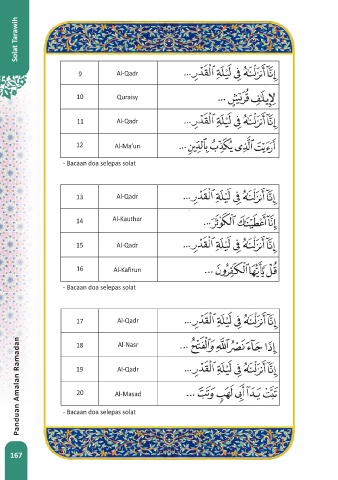 Solat Tarawih
9 Al-Qadr إِنَّآ أَنزَلْنَٰهُ فِى لَيْلَةِ ٱلْقَدْرِ ...
10 Quraisy لِإِيلَٰفِ قُرَيْشٍ ...
11 Al-Qadr إِنَّآ أَنزَلْنَٰهُ فِى لَيْلَةِ ٱلْقَدْرِ ...
12 Al-Ma'un أَرَءَيْتَ ٱلَّذِى يُكَذِّبُ بِٱلدِّينِ ...
- Bacaan doa selepas solat
13 Al-Qadr إِنَّآ أَنزَلْنَٰهُ فِى لَيْلَةِ ٱلْقَدْرِ ...
14 Al-Kauthar إِنَّآ أَعْطَيْنَٰكَ ٱلْكَوْثَرَ ...
15 Al-Qadr إِنَّآ أَنزَلْنَٰهُ فِى لَيْلَةِ ٱلْقَدْرِ ...
16 Al-Kafirun قُلْ يَٰٓأَيُّهَا ٱلْكَٰفِرُونَ ...
- Bacaan doa selepas solat
17 Al-Qadr إِنَّآ أَنزَلْنَٰهُ فِى لَيْلَةِ ٱلْقَدْرِ ...
18 Al-Nasr إِذَا جَآءَ نَصْرُ ٱللَّهِ وَٱلْفَتْحُ ...
19 Al-Qadr إِنَّآ أَنزَلْنَٰهُ فِى لَيْلَةِ ٱلْقَدْرِ ...
20 Al-Masad تَبَّتْ يَدَآ أَبِى لَهَبٍ وَتَبَّ ...
- Bacaan doa selepas solat
Panduan Amalan Ramadan
167